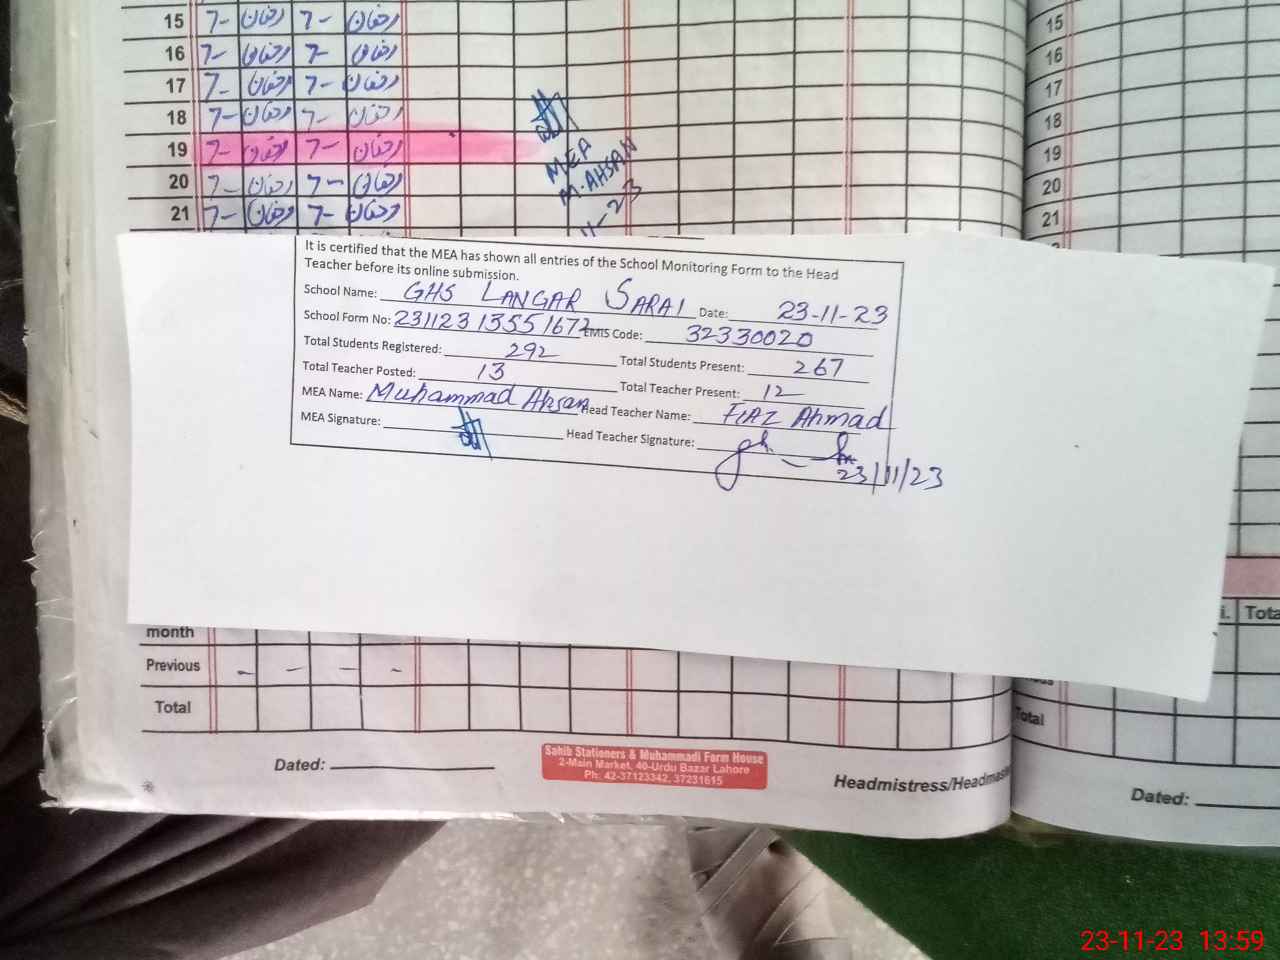 15 7- رخسان 7- رخسان
16 7- رخسان 7- رخسان
17 7- رخسان 7- رخسان
18 7- رخسان 7- رخسان
19 7- رخسان 7- رخسان
20 7- رخسان 7- رخسان
21 7- رخسان 7- رخسان
MEA
M. AHSAN
11-23
15
16
17
18
19
20
21
It is certified that the MEA has shown all entries of the School Monitoring Form to the Head
Teacher before its online submission.
School Name: GHS LANGAR SARAI Date: 23-11-23
School Form No: 23112313551672 EMIS Code: 32330020
Total Students Registered: 292 Total Students Present: 267
Total Teacher Posted: 13 Total Teacher Present: 12
MEA Name: Muhammad Ahsan Head Teacher Name: FIAZ Ahmad
MEA Signature: Head Teacher Signature:
23/11/23
month
Previous - - - -
Total
Dated:
Sahib Stationers & Muhammadi Form House
2-Main Market, 40-Urdu Bazar Lahore
Ph: 42-37123342, 37231615
Headmistress/Headmas
i. Tota
Total
Dated:
23-11-23 13:59